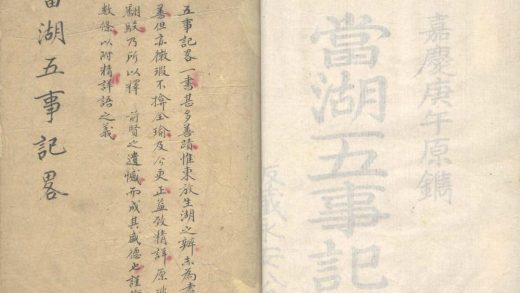 嘉慶庚午原鐫
當湖五事記
五事記畧一書甚多善蹟惟東放生湖之辨未為
善但亦微瑕不掩全瑜及今更正益致精詳原
翻駁乃所以釋 前賢之遺憾而成其盛德也謹
數條以附精詳語之義
當湖五事記畧